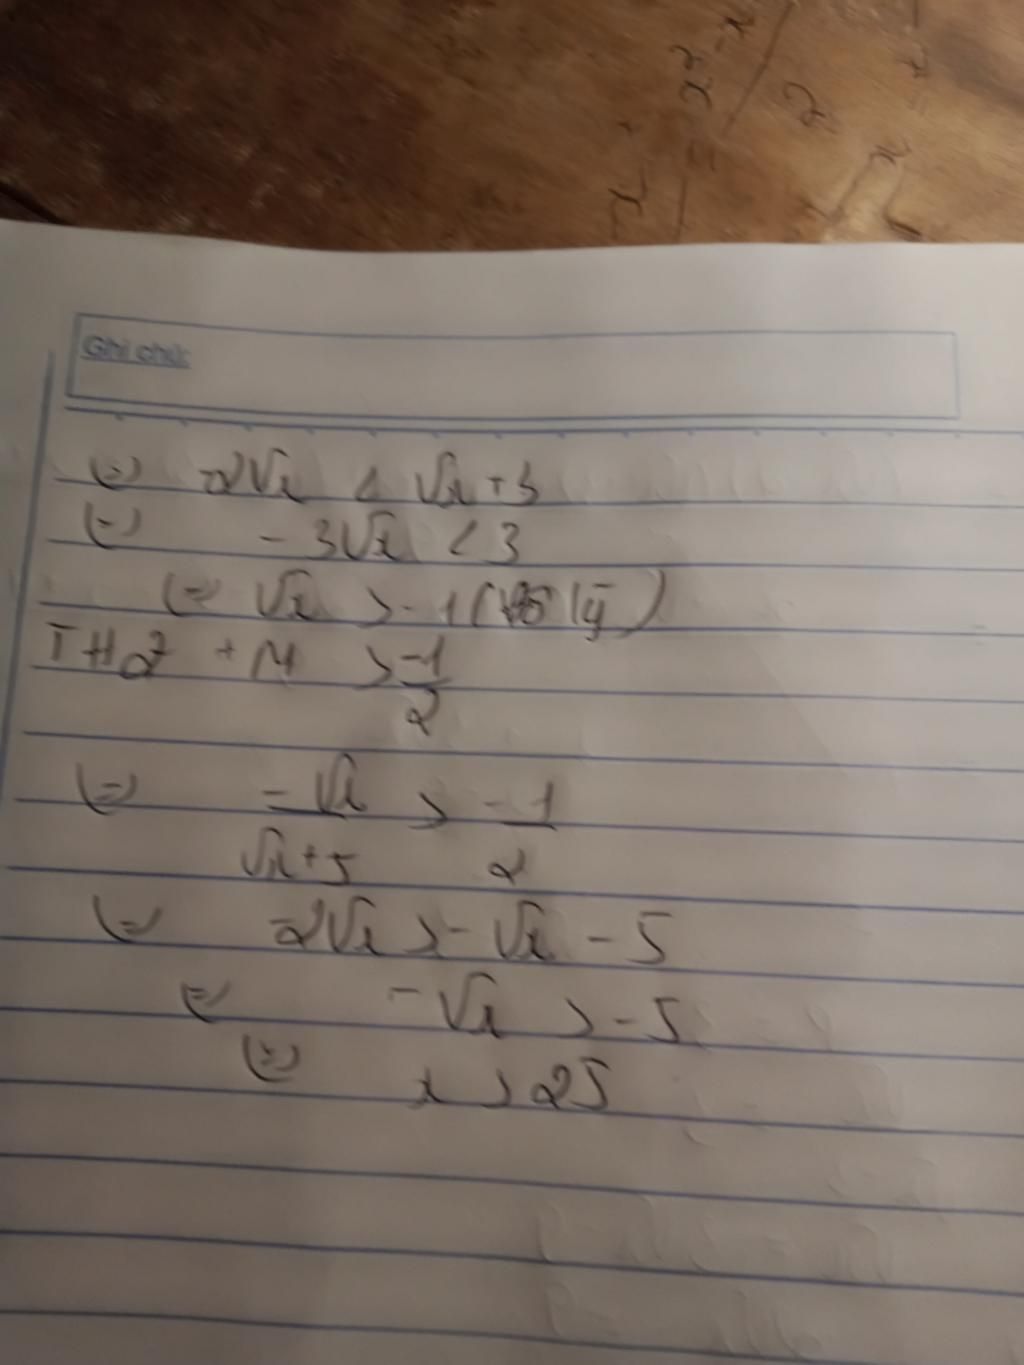 x² - x
2
Ghi chú:
(=) -2√x < √x + 3
(=) - 3√x < 3
(=) √x > -1 ( lý )
TH2 + M > -1/2
(=) -√x/√x+5 > -1/2
(=) -2√x > - √x - 5
(=) - √x > - 5
(=) x > 25